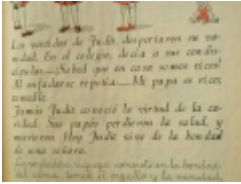 Los vestidos de Judit, despertaron su va-
nidad. En el colegio, decía a sus condis-
cípulas.—¡Sabed que en casa somos ricos!
Al enfadarse repetía.—Mi papá es rico;
Jamás Judit conoció la virtud de la ca-
ridad. Sus papás perdieron la salud, y
murieron. Hoy Judit vive de la bondad
de una señora.
La verdadera riqueza consiste en la bondad
del alma, el orgullo y la vanidad,